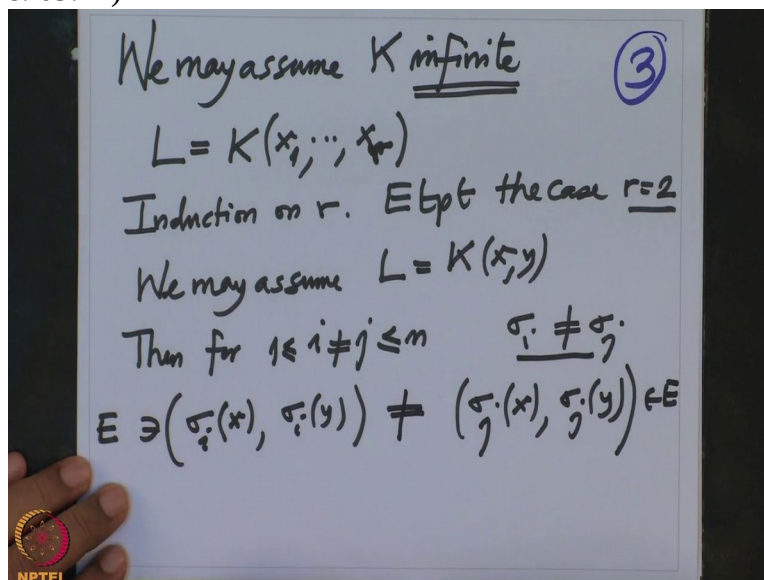 We may assume K infinite
3
L = K(x₁, ..., xᵣ)
Induction on r. Etpt the case r=2
We may assume L = K(x,y)
Then for 1 ≤ i ≠ j ≤ n σᵢ ≠ σⱼ
E ∋ (σᵢ(x), σᵢ(y)) ≠ (σⱼ(x), σⱼ(y)) ∈ E
NPTEL